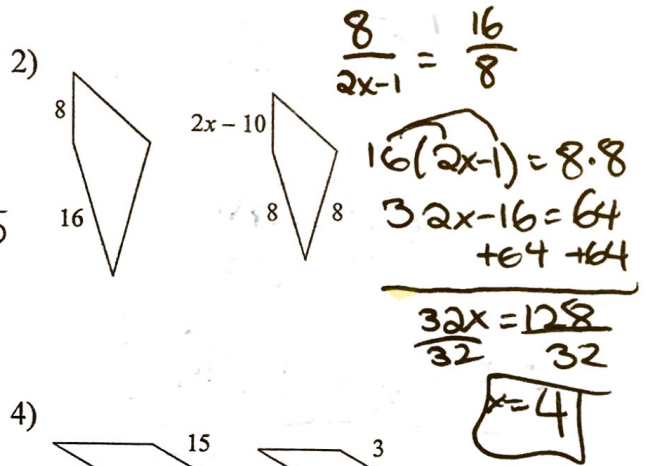 2)
8
16
2x – 10
8
8
8/(2x-1) = 16/8
16(2x-1) = 8·8
32x-16 = 64
+64 +64
32x/32 = 128/32
x=4
4)
15
3